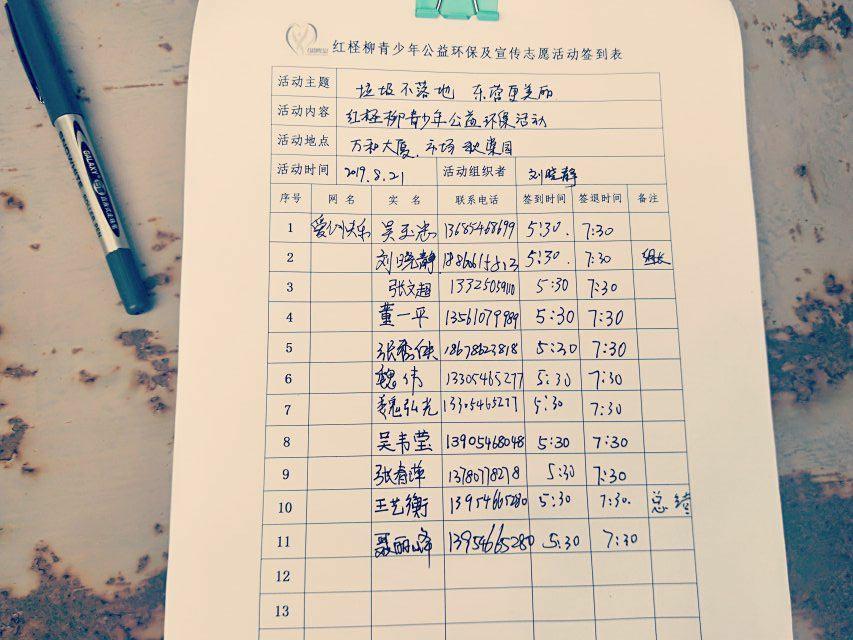 红柽柳青少年公益环保及宣传志愿活动签到表
活动主题 垃圾不落地 东营更美丽
活动内容 红柽柳青少年公益环保活动
活动地点 万和大厦.市场 欢乐园
活动时间 2019.8.21 活动组织者 刘晓静
序号 网名 实名 联系电话 签到时间 签退时间 备注
1 吴玉忠 13685468699 5:30. 7:30
2 刘晓静 5:30. 7:30 组长
3 张文超 13325059110 5:30 7:30
4 董一平 13561079989 5:30 7:30
5 18678623818 5:30 7:30
6 魏伟 13305465277 5:30 7:30
7 魏弘光 13305465277 5:30 7:30
8 吴韦莹 13905468048 5:30 7:30
9 张春萍 13780778278 5:30 7:30
10 王艺衡 13954665280 5:30 7:30. 总结
11 聂丽峰 13954665280 5:30 7:30
12
13
GALAXY